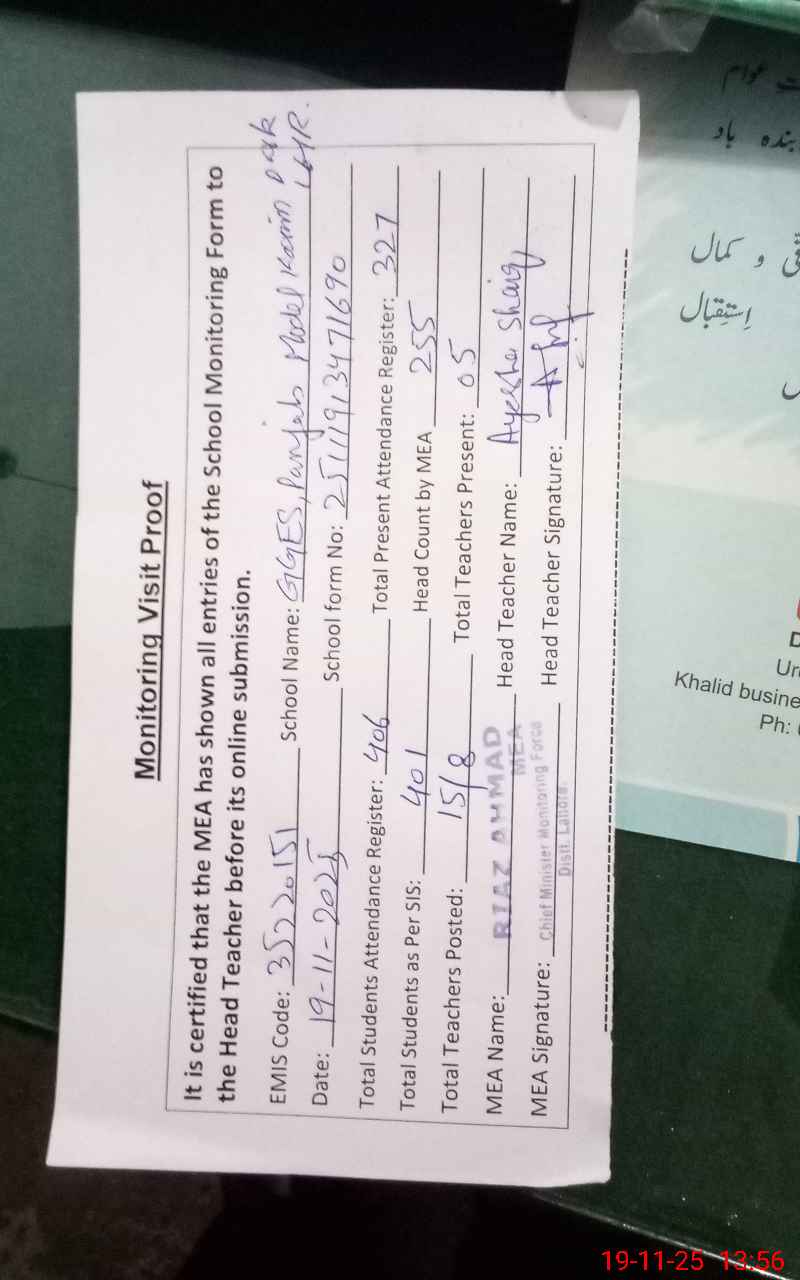 Monitoring Visit Proof
It is certified that the MEA has shown all entries of the School Monitoring Form to
the Head Teacher before its online submission.
EMIS Code: 35220151 School Name: GGES, Punjab Model Karim Park LHR.
Date: 19-11-2025 School form No: 25111913471690
Total Students Attendance Register: 406 Total Present Attendance Register: 327
Total Students as Per SIS: 401 Head Count by MEA 255
Total Teachers Posted: 15/8 Total Teachers Present: 05
MEA Name: RIAZ AHMAD Head Teacher Name: Ayesha Shaiq
MEA
MEA Signature: Chief Minister Monitoring Force Head Teacher Signature:
Distt. Lahore.
عوام
بندہ باد
و کمال
اِستِقبال
Khalid busine
Ph:
19-11-25 13:56